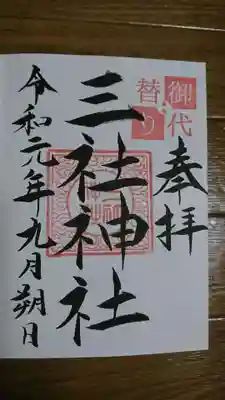 御代
替り
奉拝
三社神社
令和元年九月朔日